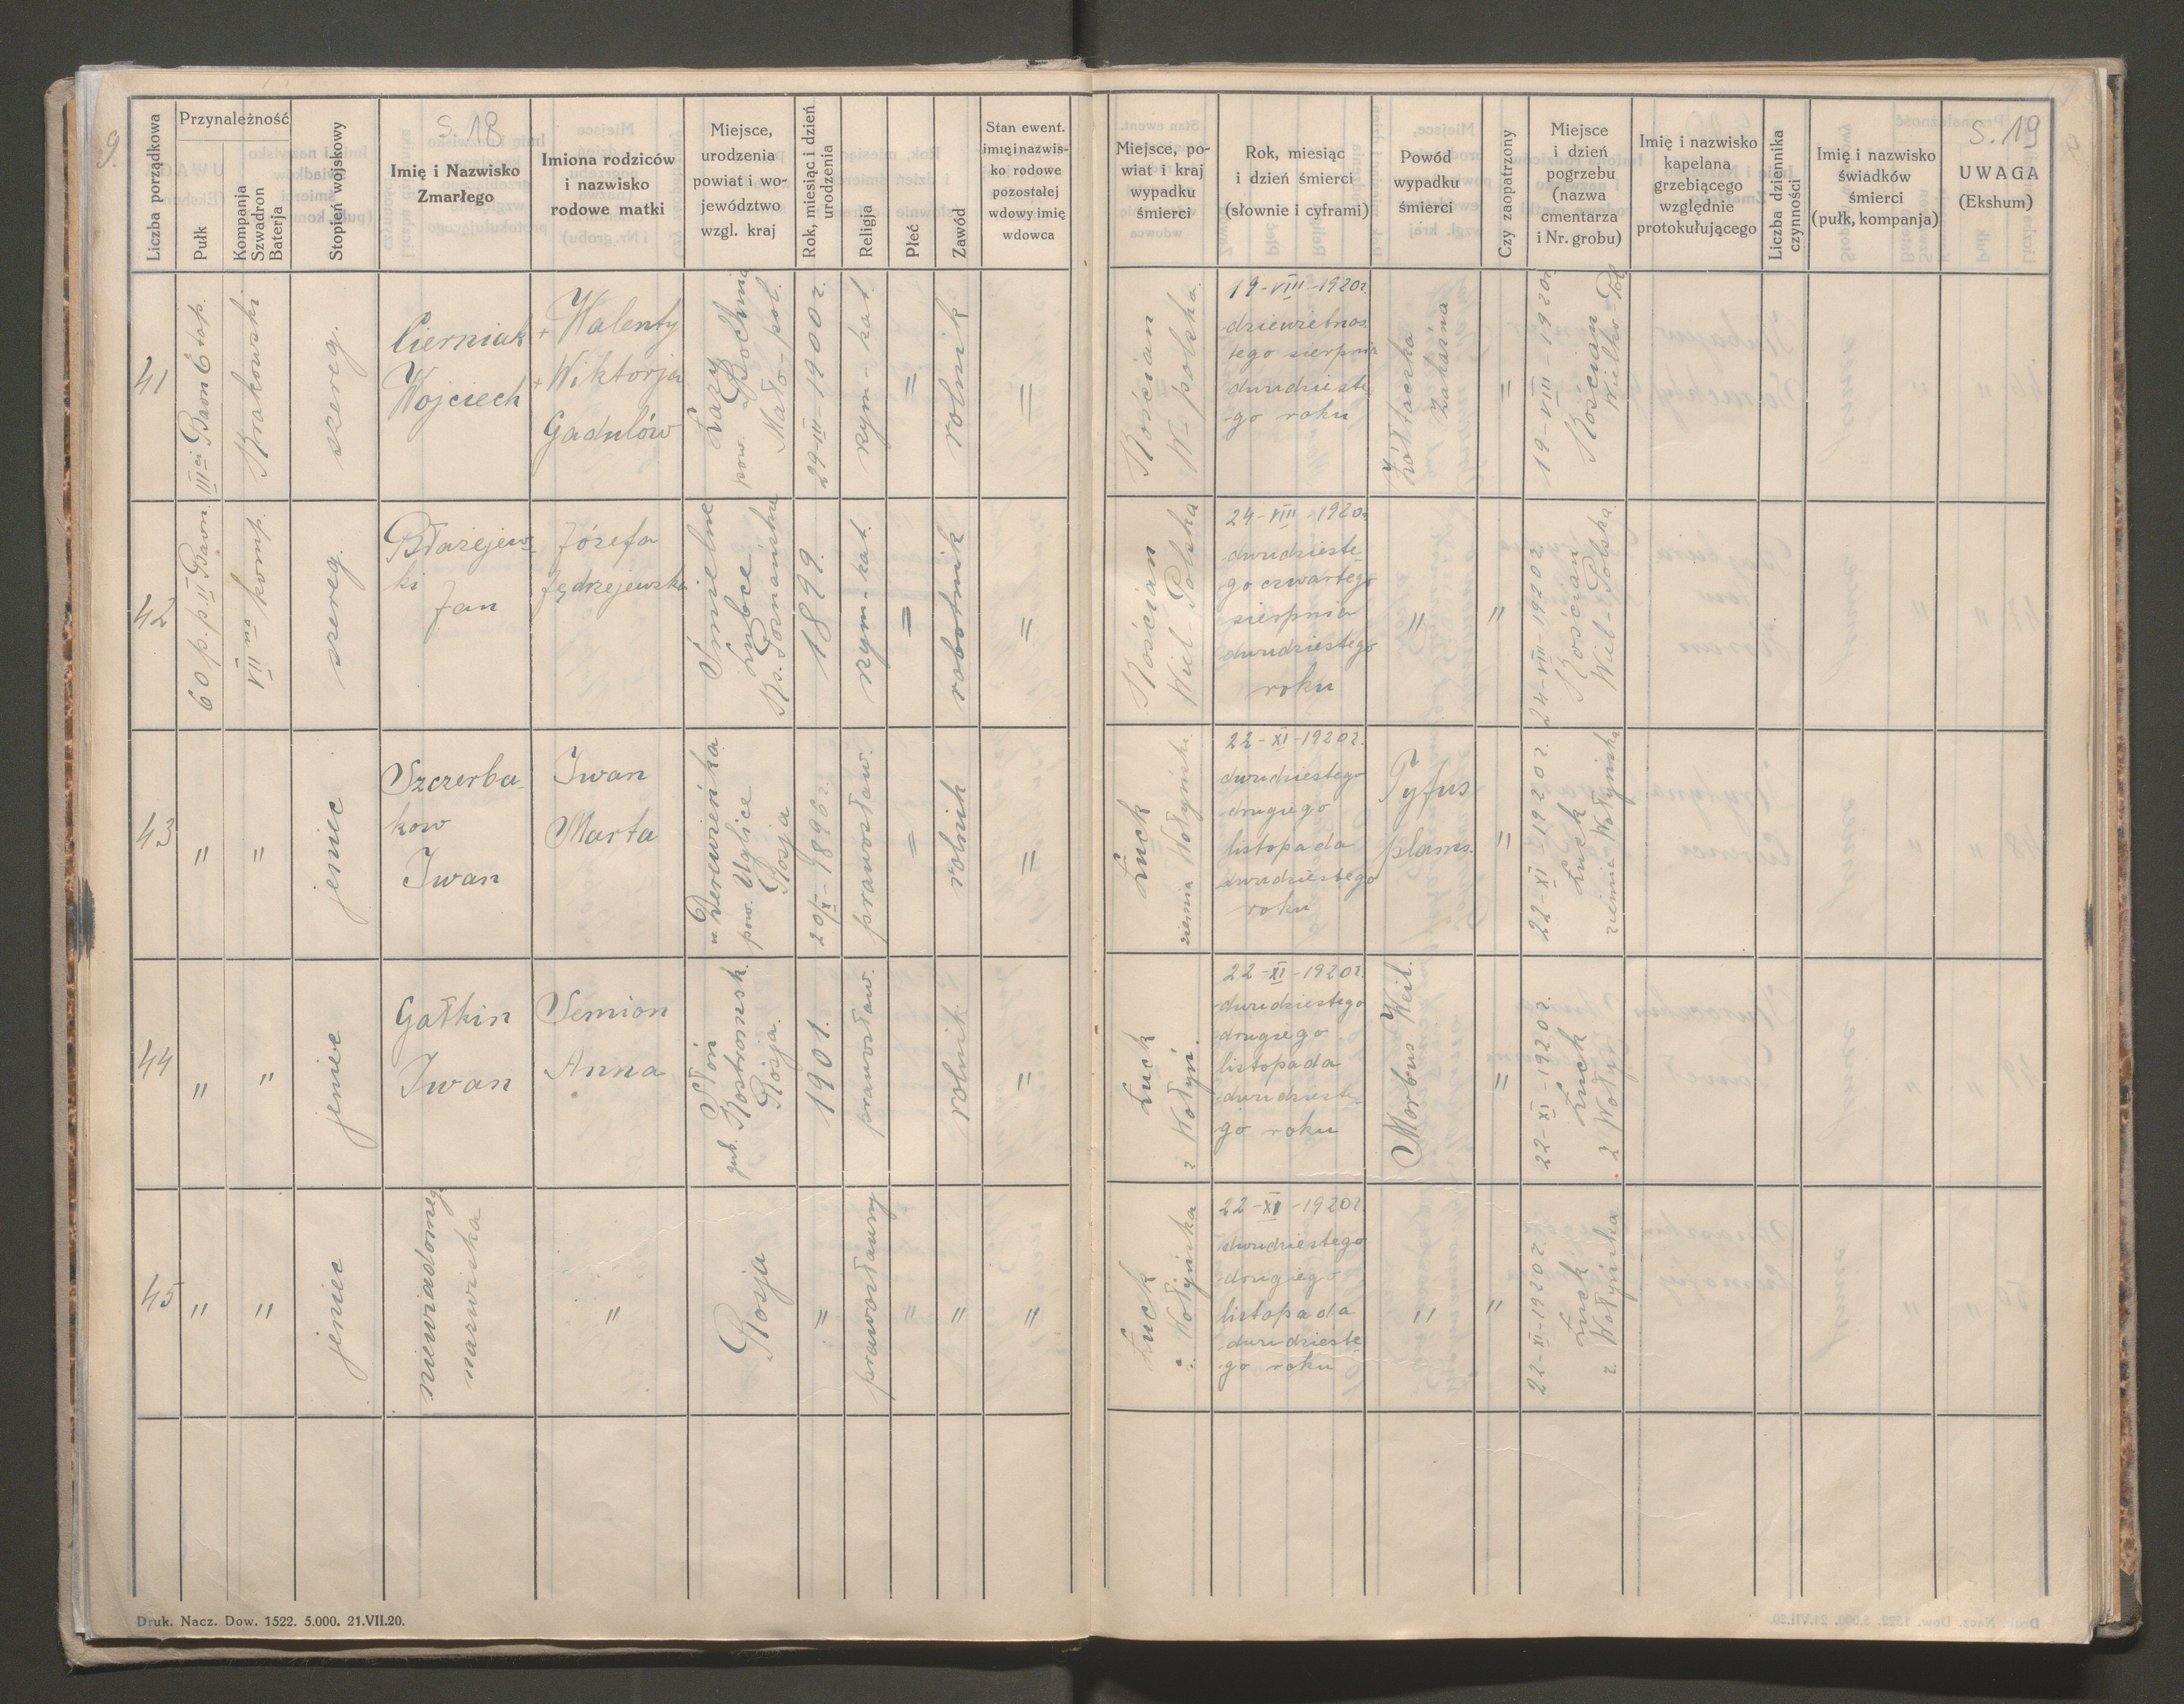 9.
s. 18
s. 19
Liczba porządkowa
Przynależność
Pułk
Kompanja
Szwadron
Baterja
Stopień wojskowy
Imię i Nazwisko
Zmarłego
Imiona rodziców
i nazwisko
rodowe matki
Miejsce,
urodzenia
powiat i wo-
jewództwo
wzgl. kraj
Rok, miesiąc i dzień
urodzenia
Religja
Płeć
Zawód
Stan ewent.
imię i nazwis-
ko rodowe
pozostałej
wdowy imię
wdowca
Miejsce, po-
wiat i kraj
wypadku
śmierci
Rok, miesiąc
i dzień śmierci
(słownie i cyframi)
Powód
wypadku
śmierci
Czy zaopatrzony
Miejsce
i dzień
pogrzebu
(nazwa
cmentarza
i Nr. grobu)
Imię i nazwisko
kapelana
grzebiącego
względnie
protokułującego
Liczba dziennika
czynności
Imię i nazwisko
świadków
śmierci
(pułk, kompanja)
UWAGA
(Ekshum)
41
III ci Baon Etap.
Krakowski
szereg.
Cierniak
Wojciech
+ Walenty
+ Wiktorja
Gadulów
Łazy
pow. Bochnia
Mało-pol.
29-III-1900 r.
rym-kat.
=
rolnik
=
Kościan
W-polska.
19-VIII-1920r.
dziewietnas
tego sierpnia
dwudzieste
-go roku
Żółtaczka
zakaźna
"
19-VIII-1920r.
Kościan
Wielko-Pol
42
60 p. p. II Baon
VIII ma komp.
szereg.
Błażejews
ki
Jan
Józefa
Jędrzejewska
Śmielne
Lubce
Ks. Poznańskie
1899.
rym-kat.
=
robotnik
=
Kościan
Wiel-Polska
24-VIII-1920r
dwudzieste
-go czwartego
sierpnia
dwudziestego
roku
"
"
24-VIII-1920 r.
Kościan
Wiel-Polska.
43
"
"
jeniec
Szczerba-
kow
Iwan
Iwan
Marta
pow. Uglice
Rosja
prawosław.
=
rolnik
=
Łuck
ziemia Wołyńska
22-XI-1920 r.
dwudziestego
drugiego
listopada
dwudziestego
roku
Tyfus
plams.
"
22-XI-1920 r.
Łuck
ziemia Wołyńska
44
"
"
jeniec
Gałkin
Iwan
Semion
Anna
Słoń
gub. Kostromsk.
Rosja.
1901.
prawosław.
rolnik
"
Łuck
z Wołyń.
22-XI-1920 r.
dwudziestego
drugiego
listopada
dwudzieste-
go roku
Morbus Weil.
"
22-XI-1920 r.
Łuck
z Wołyń.
45
"
"
jeniec
niewiadomego
nazwiska
"
Rosja
"
prawosławny
"
"
"
Łuck
z. Wołyńska
22-XI-1920 r.
dwudziestego
drugiego
listopada
dwudzieste
go roku
"
"
22-XI-1920 r.
Łuck
z Wołyńska
Druk. Nacz. Dow. 1522. 5.000. 21.VII.20.